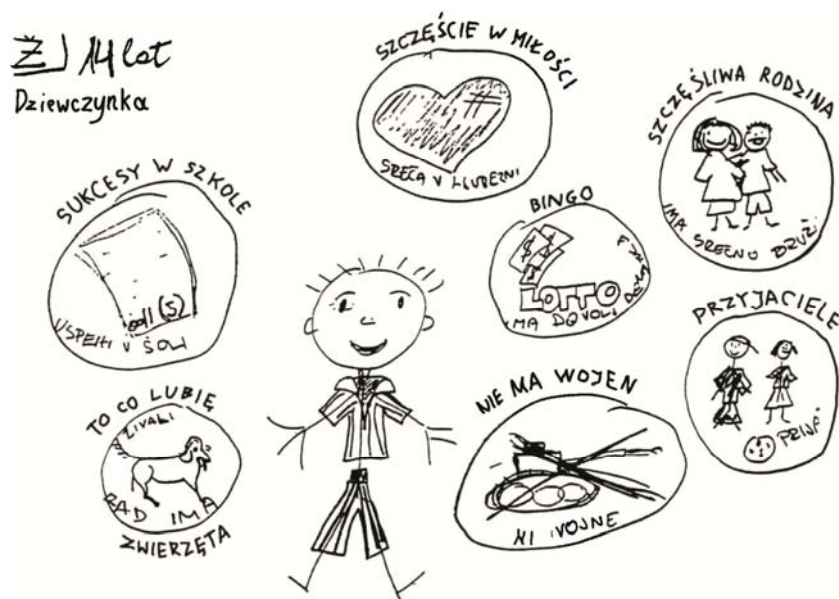 Ž | 14 lat
Dziewczynka
SZCZĘŚCIE W MIŁOŚCI
SREČA V LJUBEZNI
SZCZĘŚLIWA RODZINA
IMA SREČNO DRUŽI
SUKCESY W SZKOLE
odl (5)
USPEHI V ŠOLI
BINGO
$ $
LOTTO
IMA DOVOLJ
PRZYJACIELE
TO CO LUBIĘ
ŽIVALI
RAD IMA
ZWIERZĘTA
NIE MA WOJEN
NI VOJNE